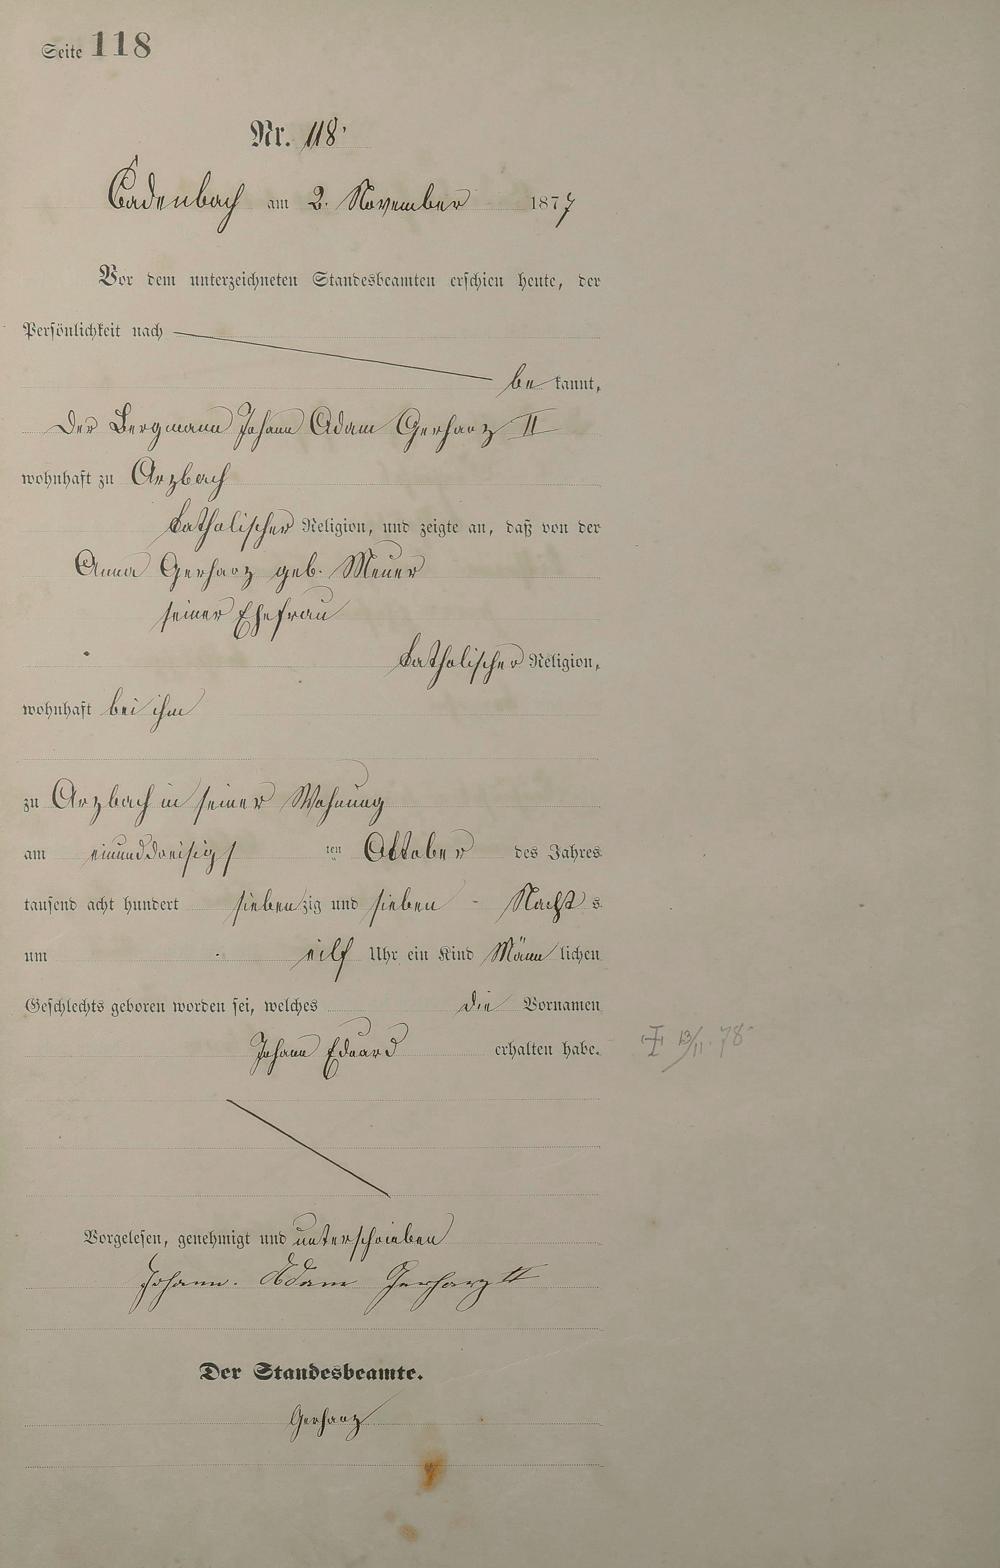 Seite 118
Nr. 118.
Cadenbach am 2. November 1877
Vor dem unterzeichneten Standesbeamten erschien heute, der
Persönlichkeit nach
be kannt,
Der Bergmann Johann Adam Gerharz II
wohnhaft zu Arzbach
katholischer Religion, und zeigte an, daß von der
Anna Gerharz geb. Meuer
seiner Ehefrau
katholischer Religion,
wohnhaft bei ihm
zu Arzbach in seiner Wohnung
am einunddreisigs ten Oktober des Jahres
tausend acht hundert siebenzig und sieben - Nacht s
um eilf Uhr ein Kind Männ lichen
Geschlechts geboren worden sei, welches die Vornamen
Johann Eduard erhalten habe.
13/11. 78
Vorgelesen, genehmigt und unterschrieben
Johann. Adam Gerharz II
Der Standesbeamte.
Gerharz